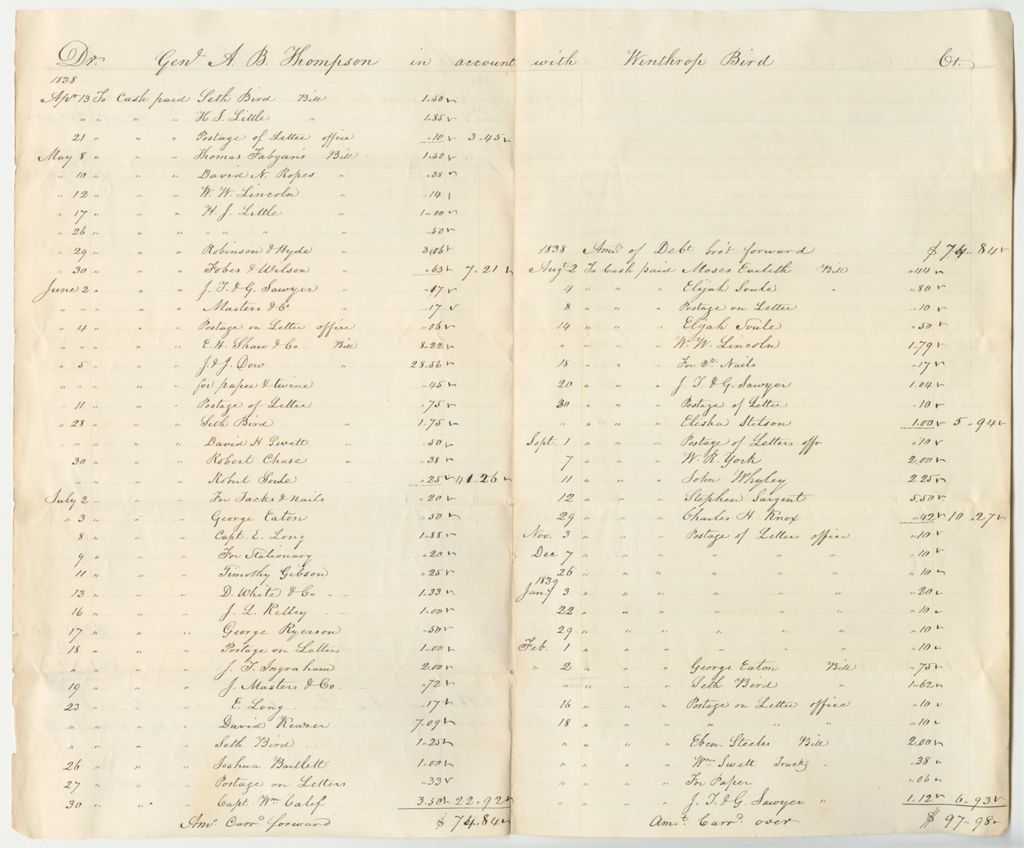 Dr. Genl A. B. Thompson in account with Winthrop Bird Cr.
1838
Apl 13 To Cash paid Seth Bird Bill 1.50
" " " H. J. Little " 1.85
21 " " " Postage of Letter office .10 3.45
May 8 " " " Thomas Fabyan's Bill 1.50
" 10 " " " David N. Ropes " .38
" 12 " " " W. W. Lincoln " .14
" 17 " " " H. J. Little " 1.00
" 26 " " " " " " " .50
" 29 " " " Robinson & Hyde " 3.06
" 30 " " " Fobes & Wilson " .63 7.21
June 2 " " " J. T. & G. Sawyer " .17
" " " " Masters & Co " .17
" 4 " " " Postage on Letter office .06
" " " " E. H. Shaw & Co. Bill 8.22
" 5 " " " J. & J. Dow " 28.56
" " " " for paper & twine .45
" 11 " " " Postage of Letter .75
" 28 " " " Seth Bird " 1.75
" " " " David H Swett " .50
30 " " " Robert Chase " .38
" " " Robert Soule " .25 41.26
July 2 " " " For Tacks & Nails .20
" 3 " " " George Eaton .50
8 " " " Capt. E. Long 1.88
9 " " " For Stationary .20
11 " " " Timothy Gibson .25
13 " " " D. White & Co. 1.33
16 " " " J. L. Kelley 1.00
17 " " " George Ryerson .50
18 " " " Postage on Letters 1.00
" " " " J. T. Ingraham 2.00
19 " " " J. Masters & Co. .72
23 " " " E. Long .17
" " " " David 7.09
" " " " Seth Bird 1.25
26 " " " Joshua Bartlett 1.00
27 " " " Postage on Letters .33
30 " " " Capt. Wm Calef 3.50 22.92
Amt. Carrd. forward $ 74.84
1838 Amt. of Debt brot forward $ 74.84
Augt 2 To Cash paid Moses Eveleth Bill .44
4 " " " Elijah Soule " .80
8 " " " Postage on Letter .10
14 " " " Elijah Soule .50
" " " " W. W. Lincoln 1.79
18 " " " For Nails .17
20 " " " J. T. & G. Sawyer 1.04
30 " " " Postage of Letter .10
" " " " Elisha Stetson 1.00 5.94
Sept. 1 " " " Postage of Letters offe .10
7 " " " W. R. York 2.00
11 " " " John Whyley 2.25
12 " " " Stephen Sargent 5.50
29 " " " Charles H Knox .42 10.27
Nov. 3 " " " Postage of Letters office .10
Dec 7 " " " " " " .10
26 " " " " " " .10
1839
Jany 3 " " " " " " .20
22 " " " " " " .10
29 " " " " " " .10
Feb. 1 " " " " " " .10
" 2 " " " George Eaton Bill .75
" " " " Seth Bird " 1.62
16 " " " Postage on Letter office .10
18 " " " " " " .10
" " " " Eben. Steeles Bill 2.00
" " " " Wm Swett Trucks .38
" " " " For Paper .06
" " " " J. T. & G. Sawyer " 1.12 6.93
Amt. Carrd. over $ 97.98